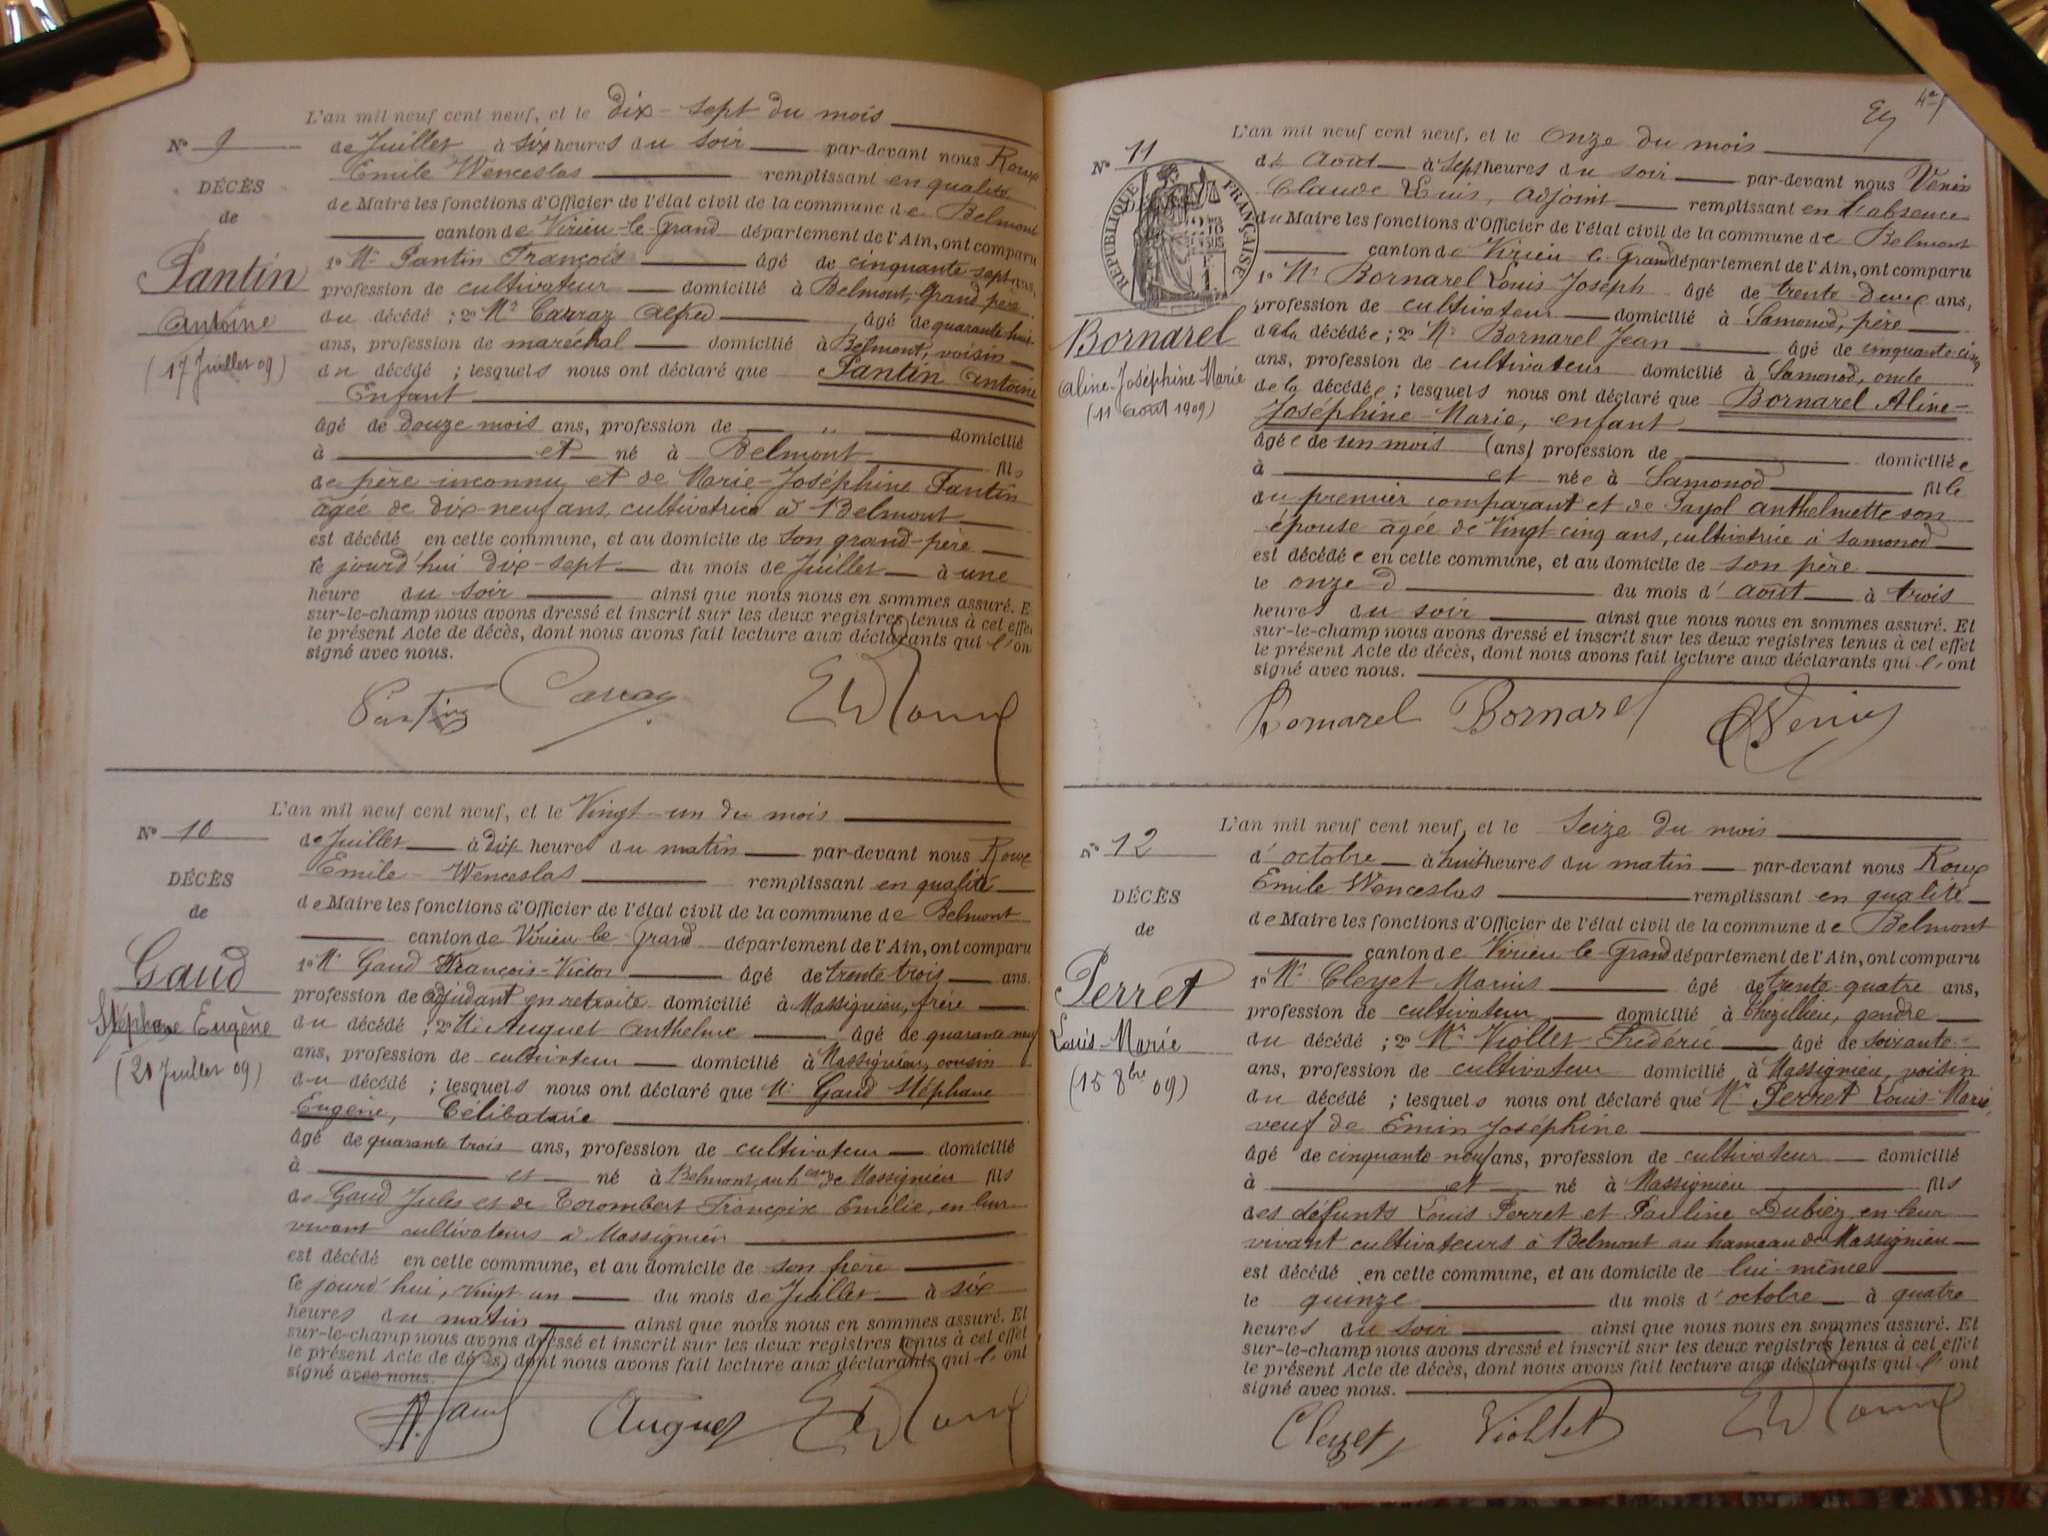 L'an mil neuf cent neuf, et le dix-sept du mois
N° 9
de Juillet à six heures du soir par-devant nous Roux
Emile Wenceslas remplissant en qualité
DÉCÈS
de Maire les fonctions d'Officier de l'état civil de la commune de Belmont
de
canton de Virieu-le-Grand département de l'Ain, ont comparu
Pantin
1° Mr Pantin François âgé de cinquante-sept ans,
profession de cultivateur domicilié à Belmont, Grand père
Antoine
du décédé ; 2° Mr Carraz Alfred âgé de quarante huit
ans, profession de maréchal domicilié à Belmont, voisin
(17 Juillet 09)
du décédé ; lesquels nous ont déclaré que Pantin Antoine
Enfant
âgé de douze mois ans, profession de " domicilié
à et né à Belmont fils
de père inconnu et de Marie-Joséphine Pantin
âgée de dix-neuf ans, cultivatrice à Belmont
est décédé en cette commune, et au domicile de son grand-père
le jourd'hui dix-sept du mois de Juillet à une
heure du soir ainsi que nous nous en sommes assuré. E
sur-le-champ nous avons dressé et inscrit sur les deux registres tenus à cet effet
le présent Acte de décès, dont nous avons fait lecture aux déclarants qui l'ont
signé avec nous.
Pantin Carraz EWRoux
L'an mil neuf cent neuf, et le Vingt-un du mois
N° 10
de Juillet à dix heures du matin par-devant nous Roux
Emile-Wenceslas remplissant en qualité
DÉCÈS
de Maire les fonctions d'Officier de l'état civil de la commune de Belmont
de
canton de Virieu-le-Grand département de l'Ain, ont comparu
Gaud
1° Mr Gaud François-Victor âgé de trente trois ans.
profession de adjudant en retraite domicilié à Massignieu, frère
Stéphane Eugène
du décédé ; 2° Mr Auguet Anthelme âgé de quarante neuf
ans, profession de cultivateur domicilié à Massignieu, cousin
(21 Juillet 09)
du décédé ; lesquels nous ont déclaré que Mr Gaud Stéphane
Eugène, Célibataire
âgé de quarante trois ans, profession de cultivateur domicilié
à et né à Belmont, au heau de Massignieu fils
de Gaud Jules et de Corombert Françoise Emélie, en leur
vivant cultivateurs à Massignieu
est décédé en cette commune, et au domicile de son frère
le jourd'hui, vingt un du mois de Juillet à six
heures du matin ainsi que nous nous en sommes assuré. Et
sur-le-champ nous avons dressé et inscrit sur les deux registres tenus à cet effet
le présent Acte de décès, dont nous avons fait lecture aux déclarants qui l'ont
signé avec nous.
Gaud Auguet EWRoux
L'an mil neuf cent neuf, et le onze du mois
N° 11
d'Août à Sept heures du soir par-devant nous Venin
Claude Louis, adjoint remplissant en l'absence
RÉPUBLIQUE FRANÇAISE
du Maire les fonctions d'Officier de l'état civil de la commune de Belmont
canton de Virieu-le-Grand département de l'Ain, ont comparu
1° Mr Bornarel Louis Joseph âgé de trente-deux ans,
profession de cultivateur domicilié à Samonod, père
Bornarel
de la décédée ; 2° Mr Bornarel Jean âgé de cinquante-cinq
ans, profession de cultivateur domicilié à Samonod, oncle
Aline-Joséphine-Marie
(11 Août 1909)
de la décédée ; lesquels nous ont déclaré que Bornarel Aline-
Joséphine-Marie, enfant
âgée de un mois (ans) profession de domiciliée
à et née à Samonod fille
du premier comparant et de Payol Anthelmette son
épouse âgée de Vingt cinq ans, cultivatrice à Samonod
est décédée en cette commune, et au domicile de son père
le onze du mois d'Août à trois
heures du soir ainsi que nous nous en sommes assuré. Et
sur-le-champ nous avons dressé et inscrit sur les deux registres tenus à cet effet
le présent Acte de décès, dont nous avons fait lecture aux déclarants qui l'ont
signé avec nous.
Bornarel Bornarel Venin
L'an mil neuf cent neuf, et le Seize du mois
N° 12
d'octobre à huit heures du matin par-devant nous Roux
Emile Wenceslas remplissant en qualité
DÉCÈS
de Maire les fonctions d'Officier de l'état civil de la commune de Belmont
de
canton de Virieu-le-Grand département de l'Ain, ont comparu
Perret
1° Mr Cleyet Marius âgé de trente-quatre ans,
profession de cultivateur domicilié à Thézillieu, gendre
Louis-Marie
du décédé ; 2° Mr Viollet Frédéric âgé de soixante-
ans, profession de cultivateur domicilié à Massignieu, voisin
(15 8bre 09)
du décédé ; lesquels nous ont déclaré que Mr Perret Louis-Marie,
veuf de Emin Joséphine
âgé de cinquante-neuf ans, profession de cultivateur domicilié
à et né à Massignieu fils
des défunts Louis Perret et Pauline Dubiez en leur
vivant cultivateurs à Belmont au hameau de Massignieu
est décédé en cette commune, et au domicile de lui-même
le quinze du mois d'octobre à quatre
heures du soir ainsi que nous nous en sommes assuré. Et
sur-le-champ nous avons dressé et inscrit sur les deux registres tenus à cet effet
le présent Acte de décès, dont nous avons fait lecture aux déclarants qui l'ont
signé avec nous.
Cleyet Viollet EWRoux